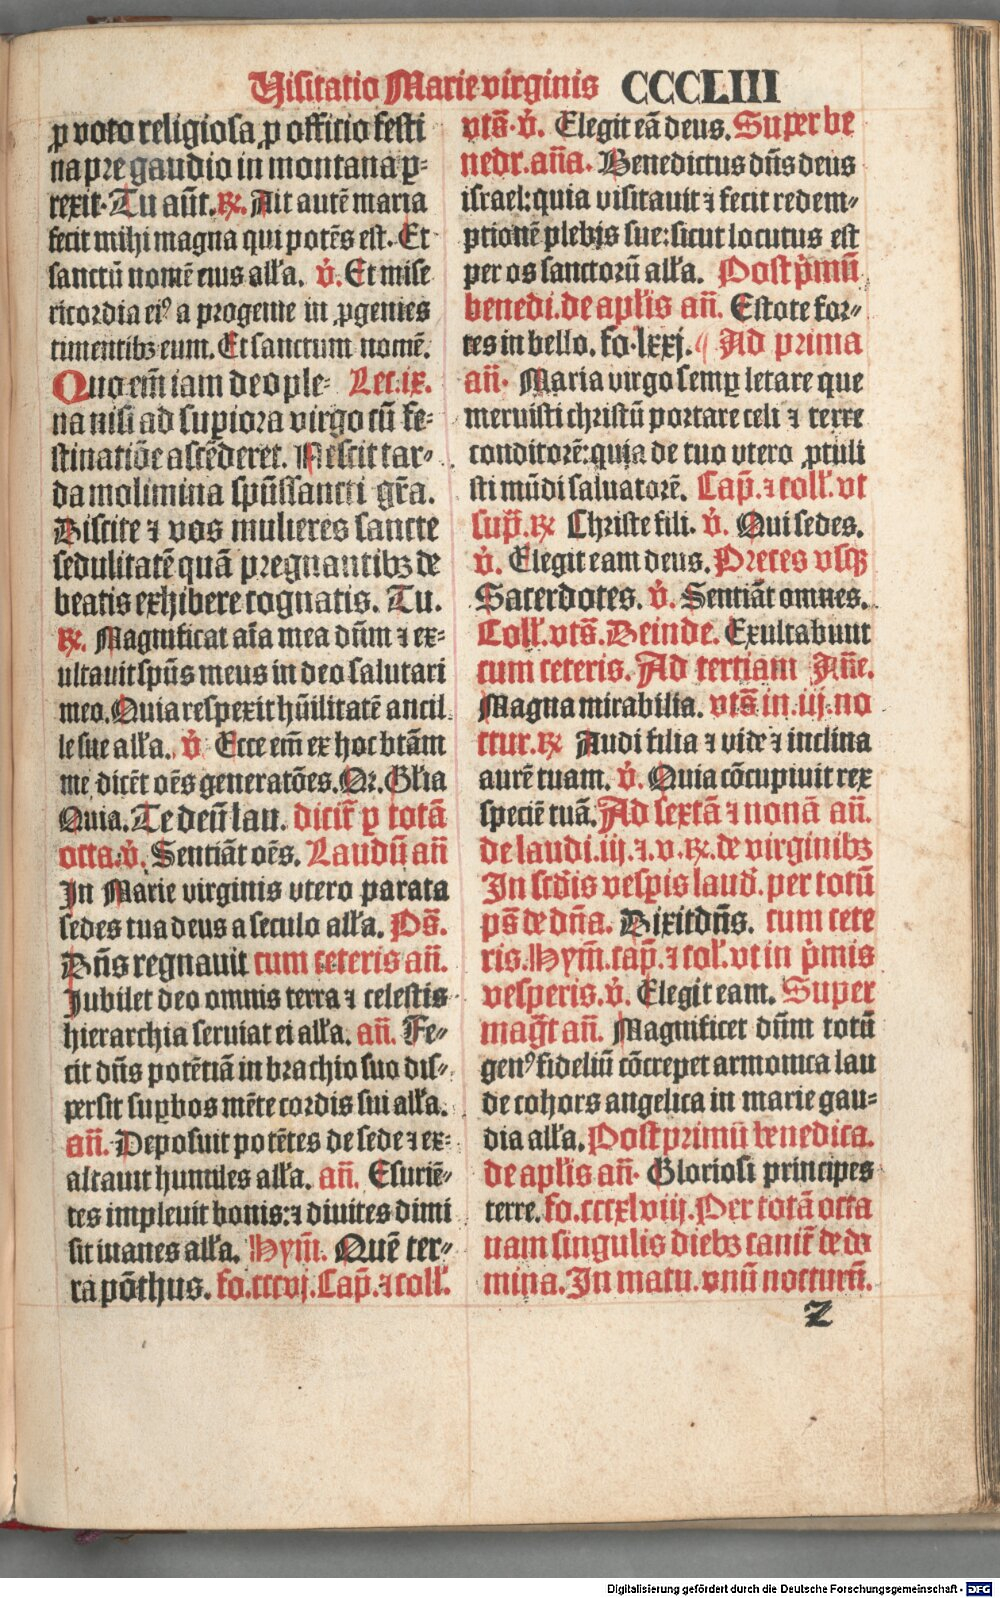 Visitatio Marie virginis CCCLIII
ꝓ voto religiosa, ꝓ officio festi
na pre gaudio in montana ꝑ⸗
rexit. Tu aūt. ℟. Ait autē maria
fecit mihi magna qui potēs est. Et
sanctū nomē eius alľa. v̇. Et mise
ricordia eiꝰ a progenie in ꝓgenies
timentibꝫ eum. Et sanctum nomē.
Quo em̄ iam deo ple⸗ Lec. ix.
na nisi ad suꝑiora virgo cū fe⸗
stinatiōe ascēderet. Nescit tar⸗
da molimina spūssancti gr̄a.
Discite ⁊ vos mulieres sancte
sedulitatē quā pregnantibꝫ de
beatis exhibere cognatis. Tu.
℟. Magnificat aīa mea dn̄m ⁊ ex⸗
ultauit spūs meus in deo salutari
meo. Quia respexit hūilitatē ancil
le sue alľa. v̇. Ecce em̄ ex hoc btām
me dicēt oēs generatōes. Or. Gľia
Quia. Te deū lau. dicit̄ ꝑ totā
octa. v̇. Sentiāt oēs. Laudū an̄
In Marie virginis vtero parata
sedes tua deus a seculo alľa. Ps̄.
Dn̄s regnauit cum ceteris an̄.
Jubilet deo omnis terra ⁊ celestis
hierarchia seruiat ei alľa. an̄. Fe⸗
cit dn̄s potētiā in brachio suo dis⸗
persit suꝑbos mēte cordis sui alľa.
an̄. Deposuit potētes de sede ⁊ ex⸗
altauit humiles alľa. an̄. Esuriē⸗
tes impleuit bonis: ⁊ diuites dimi
sit inanes alľa. Hym̄. Quē ter⸗
ra pōthus. fo. cccvj. Cap̄. ⁊ colľ.
vts̄. v̇. Elegit eā deus. Super be
nedr. an̄a. Benedictus dn̄s deus
israel: quia visitauit ⁊ fecit redem⸗
ptionē plebis sue: sicut locutus est
per os sanctorū alľa. Post pͥmū
benedi. de apľis an̄. Estote for⸗
tes in bello. fo. lxxj. Ad prima
an̄. Maria virgo semꝑ letare que
meruisti christū portare celi ⁊ terre
conditorē: quia de tuo vtero ꝓtuli
sti mūdi saluatorē. Cap̄. ⁊ colľ. vt
sup̄. ℟ Christe fili. v̇. Qui sedes.
v̇. Elegit eam deus. Preces vsqꝫ
Sacerdotes. v̇. Sentiāt omnes.
Colľ. vts̄. Deinde. Exultabunt
cum ceteris. Ad tertiam An̄e.
Magna mirabilia. vts̄ in iij. no
ctur. ℟ Audi filia ⁊ vide ⁊ inclina
aurē tuam. v̇. Quia cōcupiuit rex
speciē tuā. Ad sextā ⁊ nonā an̄.
de laudi. iij. ⁊. v. ℟. de virginibꝫ
In scd̄is vesꝑis laud. per totū
ps̄ de dn̄a. Dixit dn̄s. cum cete
ris. Hym̄. cap̄. ⁊ coľ. vt in pͥmis
vesperis. v̇. Elegit eam. Super
maḡt an̄. Magnificet dn̄m totū
genꝰ fideliū cōcrepet armonica lau
de cohors angelica in marie gau⸗
dia alľa. Post primū benedica.
de apľis an̄. Gloriosi principes
terre. fo. cccxlviij. Per totā octa
uam singulis diebꝫ canit̄ de do
mina. In matu. vnū nocturn̄.
z
Digitalisierung gefördert durch die Deutsche Forschungsgemeinschaft - DFG